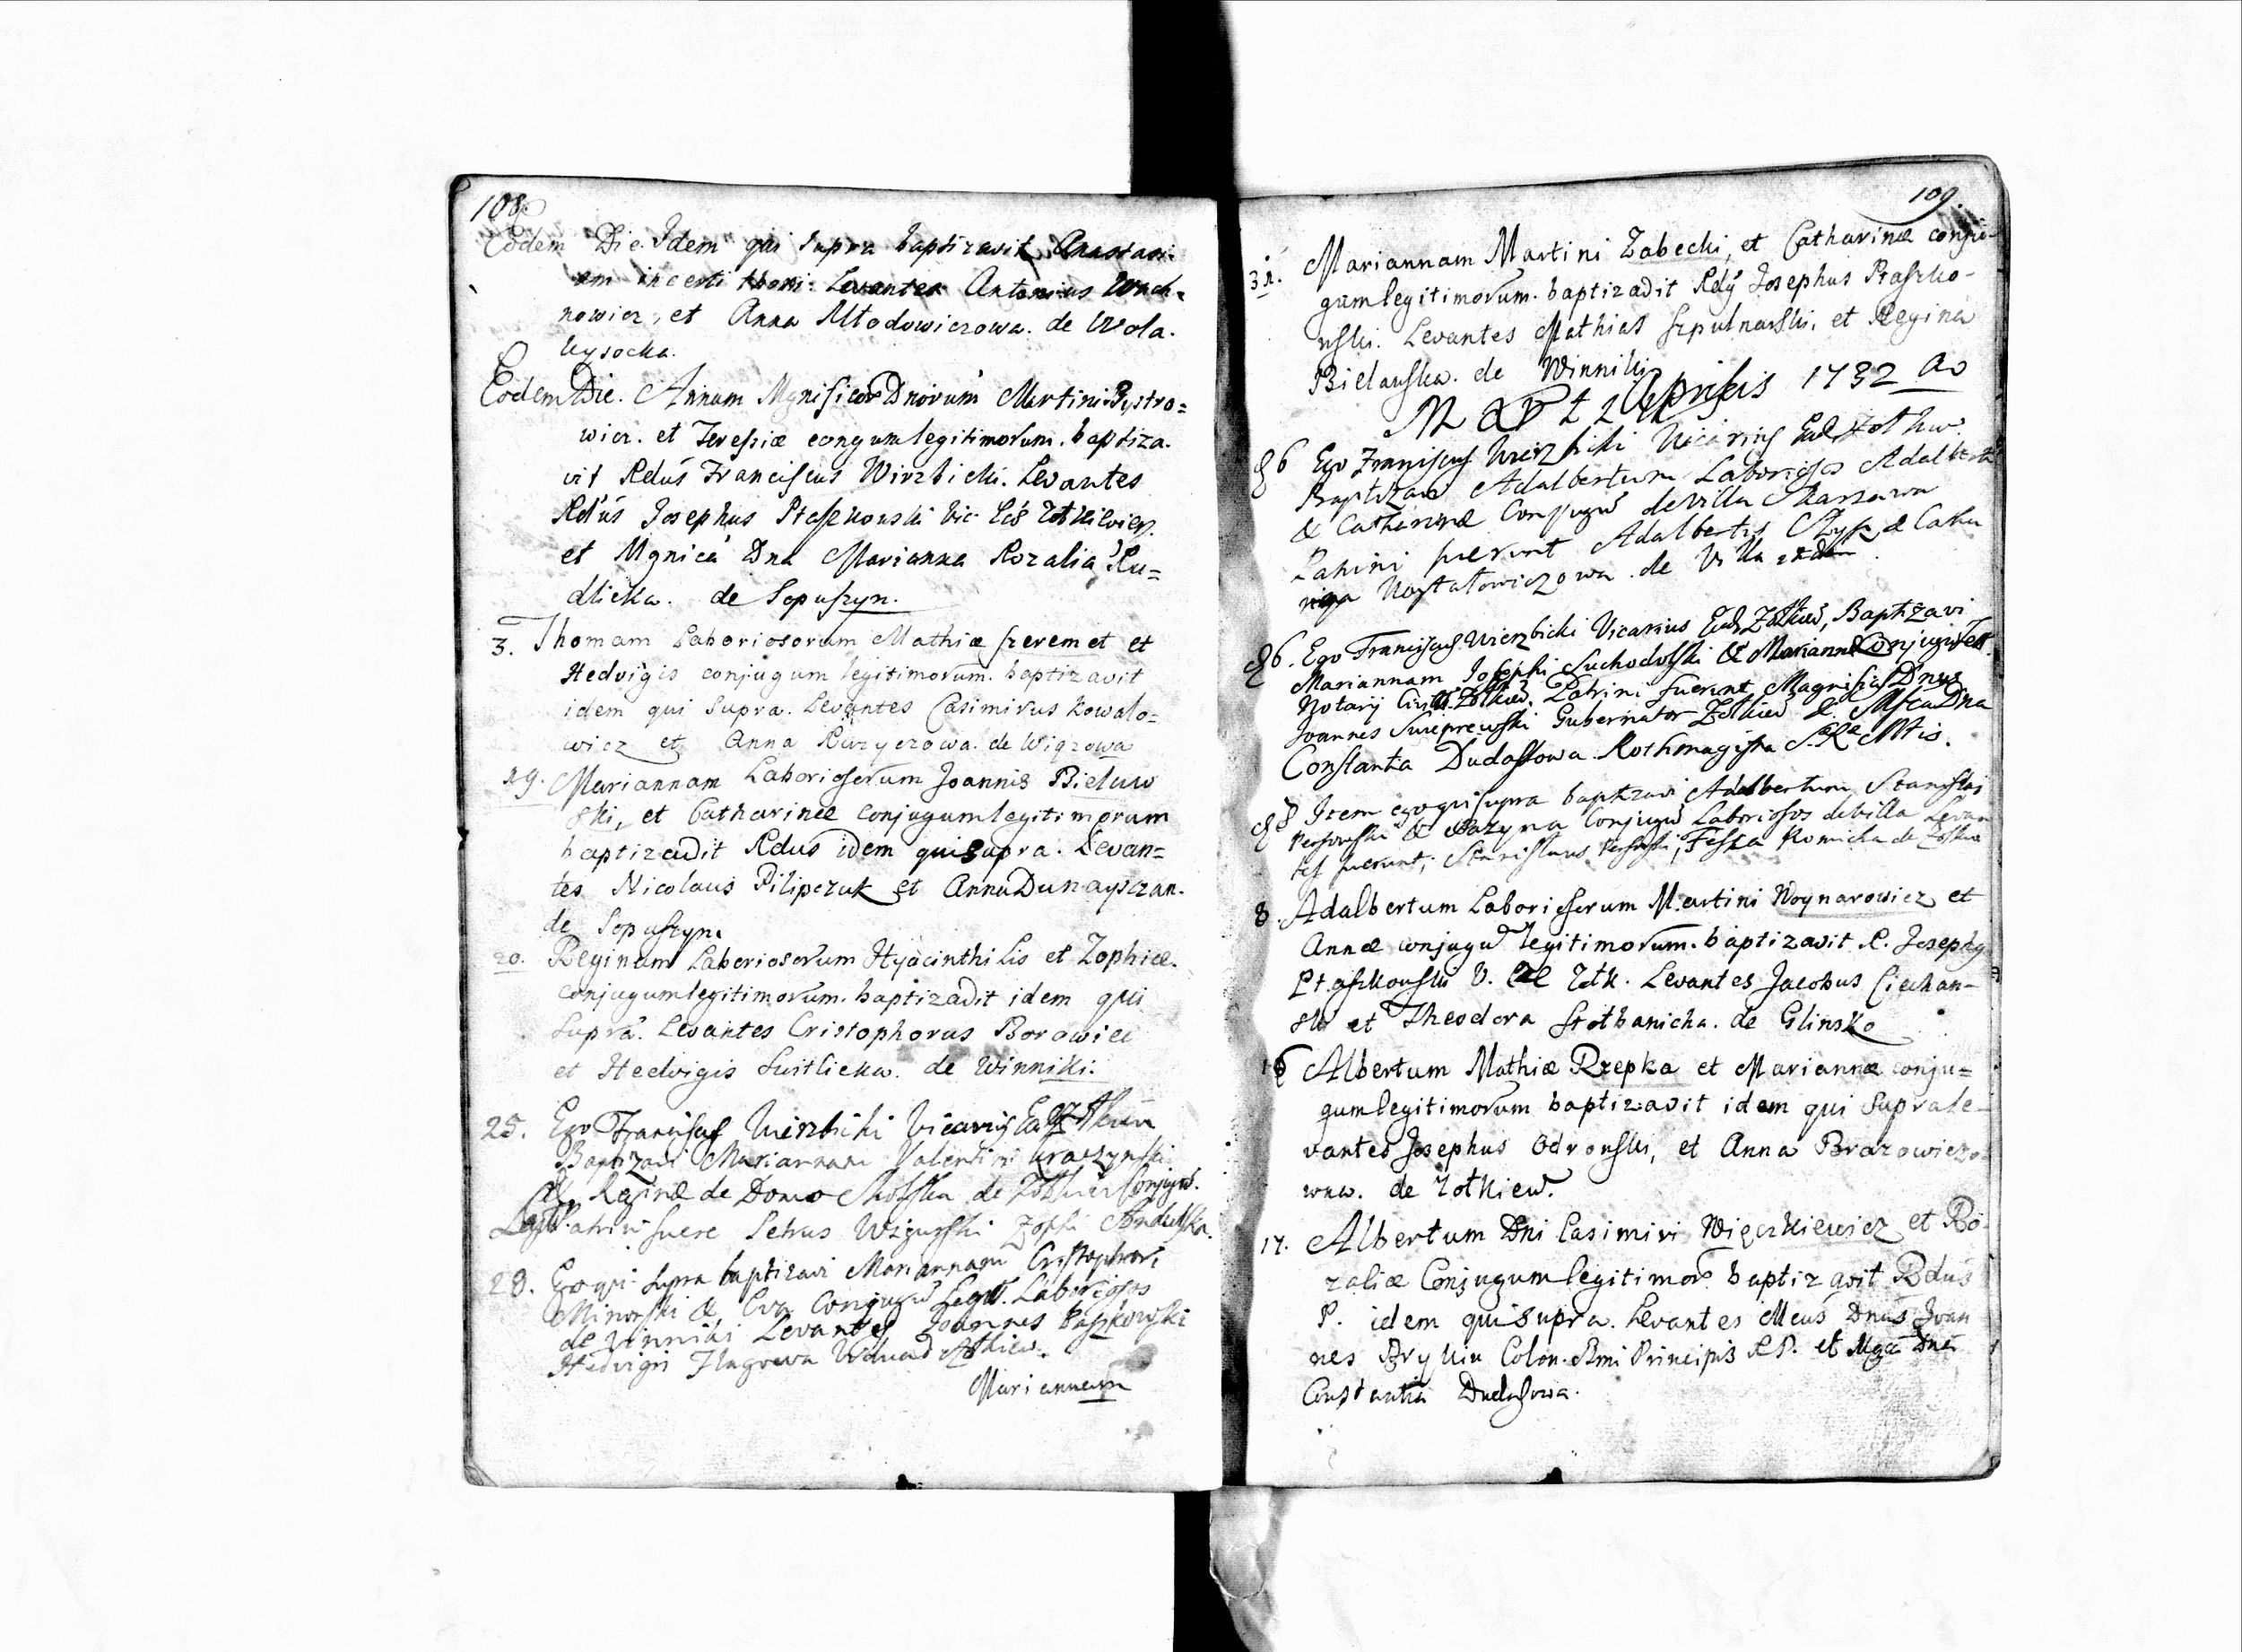 108.
Eodem Die. Idem qui supra baptizavit Anastasi-
am incerti thori. Levantes Antonius
nowicz, et Anna Młodowiczowa. de Wola.
Wysocka.
Eodem Die. Annam Mgnificor Dnorum Martini Bystro=
wicz. et Teressiæ congum legitimorum. baptiza.
vit Rdus Franciscus Wirzbicki. Levantes
Rdus Josephus Ptaszkowski Vic. Zołkiewien.
et Mgnica Dna Marianna Rozalia Ru=
dlicka. de Sopuszyn.
3. Thomam Laboriosorum Mathiæ szeremet et
Hedvigis conjugum legitimorum. baptizavit
idem qui supra. Levantes Casimirus Kowalo=
wicz et Anna Kurzyczowa. de Wiązowa
19. Mariannam Laboriosorum Joannis Bieluw
ski, et Catharinæ conjugum legitimorum
baptizavit Rdus idem qui supra. Levan=
tes Nicolaus Pilipczuk et Anna Dunayczan.
de Sopuszyn.
20. Reginam Laboriosorum Hyacinthi Lis et Zophiæ.
conjugum legitimorum. baptizavit idem qui
supra. Levantes Cristophorus Borowiec
et Hedvigis Switlicka. de Winniki.
25. Ego Franciscus Wirzbicki Vicarius
Baptizavi Mariannam Valentini
& Reginæ de Domo de Conjugu.
Patrini fuere Petrus Zophi
28. Ego qui supra baptizavi Mariannam Cristophori
Minorski & Eva Conjugu Legit. Laboriosos
de Vinniki Levantes Joannes Paszkowski
Hedvigis
Mariannam
109.
31. Mariannam Martini Zabecki, et Catharinæ conju-
gum legitimorum. baptizavit Rdy Josephus Ptaszko-
wski. Levantes Mathias Szpulnarski, et Regina
Bielawska. de Winniki
Aprilis 1732 Ao
6 Ego Franciscus Wierzbicki Vicarius Eccl Zołkw.
Baptizavi Adalbertum Laboriosos Adalberti
& Catharinæ Conjugu de Villa Skarzawa
Patrini fuerunt Adalbertus & Catha
rina de Villa eadem.
6. Ego Franciscus Wierzbicki Vicarius Eccl. Zołkiew, Baptizavi
Mariannam Josephi Suchodolski & Mariannæ Conjugu
Notarij Civit. Zołkiew. Patrini fuerunt Magnificus Dnus
Joannes Gubernator Zołkiew & Mfca Dna
Constantia Dudassowa Rothmagistra S. R. Mtis.
8 Item ego qui supra baptizavi Adalbertum Stanislai
& Conjugu Laboriosos de villa Levan
tes fuerunt, Stanislaus
8. Adalbertum Laboriosorum Martini Woynarowicz et
Annæ conjugu legitimorum. baptizavit R. Josephy
Ptaszkowski V. Zołk. Levantes Jacobus Ciechan-
ski et Theodora Stotbanicha. de Glinsko
16 Albertum Mathiæ Rzepka et Mariannæ conju=
gum legitimorum baptizavit idem qui supra le-
vantes Josephus Odrowski, et Anna Brazowiczo-
wna. de Zołkiew.
17. Albertum Dni Casimiri Więczkiewicz et Ro-
zaliæ Conjugum legitimor baptizavit Rdus
P. idem qui supra. Levantes Mcus Dnus Joan
nes Colon. Principis R P. et Mga Dna
Constantia Dudasowa.